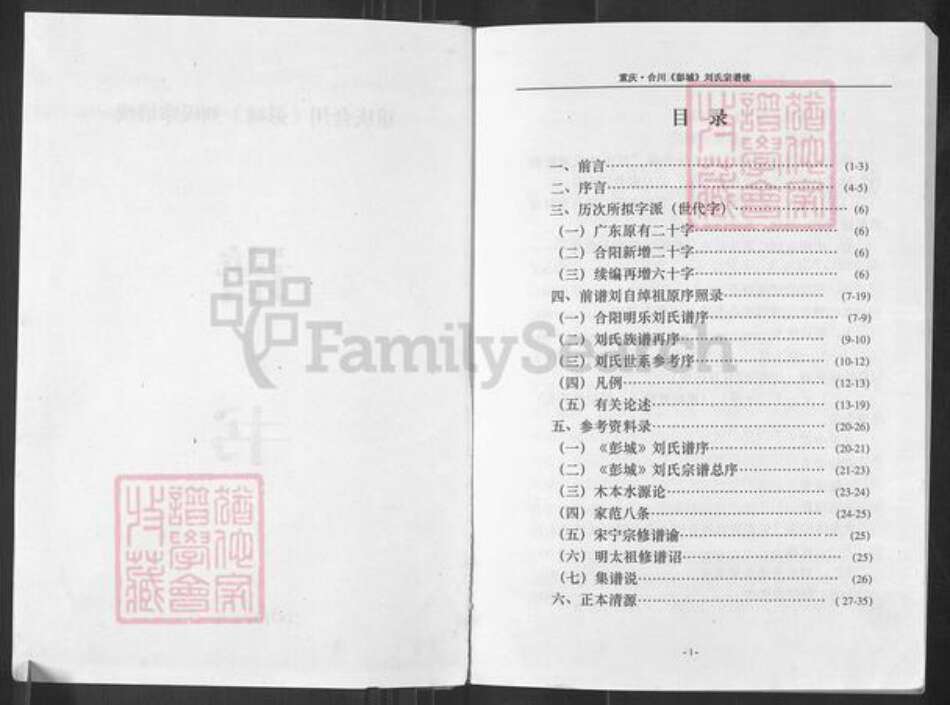 重庆·合川《彭城》刘氏宗谱续
目 录
一、前言 (1-3)
二、序言 (4-5)
三、历次所拟字派（世代字） (6)
（一）广东原有二十字 (6)
（二）合阳新增二十字 (6)
（三）续编再增六十字 (6)
四、前谱刘自绰祖原序照录 (7-19)
（一）合阳明乐刘氏谱序 (7-9)
（二）刘氏族谱再序 (9-10)
（三）刘氏世系参考序 (10-12)
（四）凡例 (12-13)
（五）有关论述 (13-19)
五、参考资料录 (20-26)
（一）《彭城》刘氏谱序 (20-21)
（二）《彭城》刘氏宗谱总序 (21-23)
（三）木本水源论 (23-24)
（四）家范八条 (24-25)
（五）宋宁宗修谱谕 (25)
（六）明太祖修谱诏 (25)
（七）集谱说 (26)
六、正本清源 (27-35)
-1-
FamilySearch
猶他家
譜學會
收藏
猶他家
譜學會
收藏